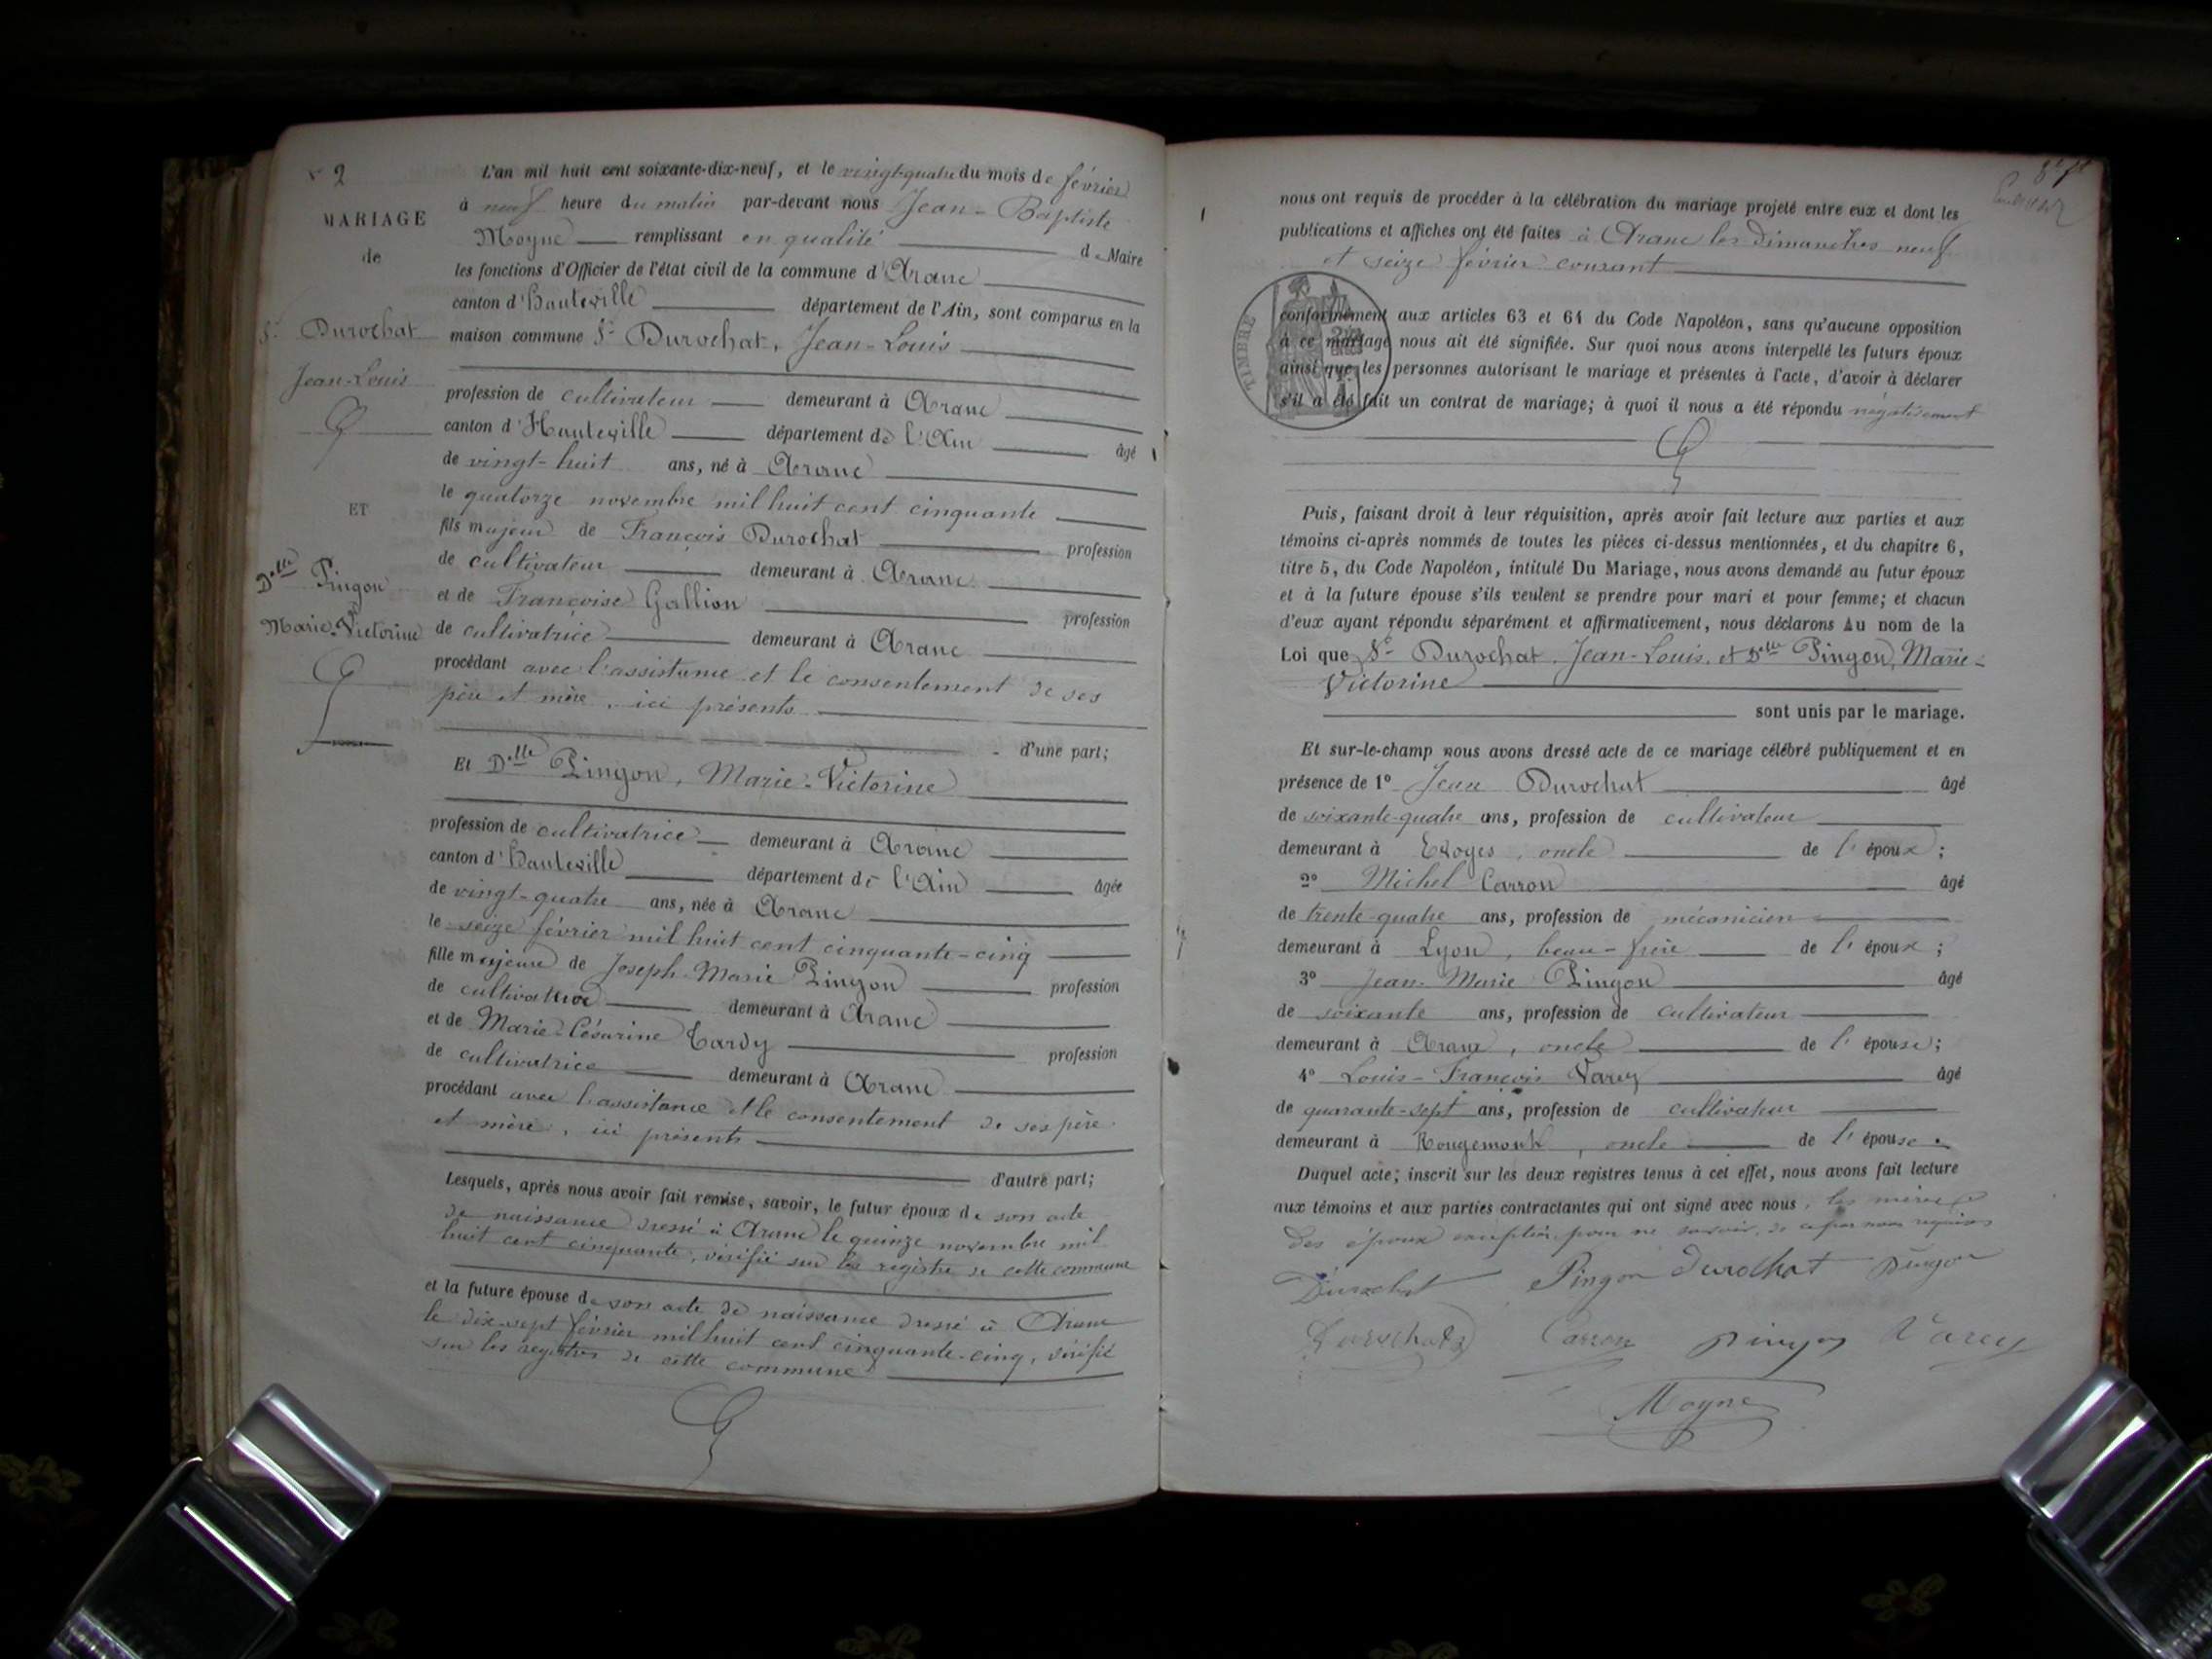 n° 2
MARIAGE
de
Sr Durochat
Jean-Louis
ET
Delle Pingon
Marie-Victorine
L'an mil huit cent soixante-dix-neuf, et le vingt-quatre du mois de février
à neuf heure du matin par-devant nous Jean-Baptiste
Moyne remplissant en qualité de Maire
les fonctions d'Officier de l'état civil de la commune d'Aranc
canton d'Hauteville département de l'Ain, sont comparus en la
maison commune Sr Durochat, Jean-Louis
profession de cultivateur demeurant à Aranc
canton d'Hauteville département de l'Ain âgé
de vingt-huit ans, né à Aranc
le quatorze novembre mil huit cent cinquante
fils majeur de François Durochat profession
de cultivateur demeurant à Aranc
et de Françoise Gallion profession
de cultivatrice demeurant à Aranc
procédant avec l'assistance et le consentement de ses
père et mère, ici présents
d'une part;
Et Delle Pingon, Marie-Victorine
profession de cultivatrice demeurant à Aranc
canton d'Hauteville département de l'Ain âgée
de vingt-quatre ans, née à Aranc
le seize février mil huit cent cinquante-cinq
fille majeure de Joseph-Marie Pingon profession
de cultivateur demeurant à Aranc
et de Marie-Césarine Tardy profession
de cultivatrice demeurant à Aranc
procédant avec l'assistance et le consentement de ses père
et mère, ici présents
d'autre part;
Lesquels, après nous avoir fait remise, savoir, le futur époux de son acte
de naissance dressé à Aranc le quinze novembre mil
huit cent cinquante, vérifié sur les registres de cette commune
et la future épouse de son acte de naissance dressé à Aranc
le dix-sept février mil huit cent cinquante-cinq, vérifié
sur les registres de cette commune
nous ont requis de procéder à la célébration du mariage projeté entre eux et dont les
publications et affiches ont été faites à Aranc les Dimanches neuf
et seize février courant
TIMBRE
conformément aux articles 63 et 64 du Code Napoléon, sans qu'aucune opposition
à ce mariage nous ait été signifiée. Sur quoi nous avons interpellé les futurs époux
ainsi que les personnes autorisant le mariage et présentes à l'acte, d'avoir à déclarer
s'il a été fait un contrat de mariage; à quoi il nous a été répondu négativement
Puis, faisant droit à leur réquisition, après avoir fait lecture aux parties et aux
témoins ci-après nommés de toutes les pièces ci-dessus mentionnées, et du chapitre 6,
titre 5, du Code Napoléon, intitulé Du Mariage, nous avons demandé au futur époux
et à la future épouse s'ils veulent se prendre pour mari et pour femme; et chacun
d'eux ayant répondu séparément et affirmativement, nous déclarons Au nom de la
Loi que Sr Durochat, Jean-Louis, et Delle Pingon, Marie-
Victorine
sont unis par le mariage.
Et sur-le-champ nous avons dressé acte de ce mariage célébré publiquement et en
présence de 1° Jean Durochat âgé
de soixante-quatre ans, profession de cultivateur
demeurant à oncle de l'époux;
2° Michel Carron âgé
de trente-quatre ans, profession de mécanicien
demeurant à Lyon, beau-frère de l'époux;
3° Jean-Marie Pingon âgé
de soixante ans, profession de cultivateur
demeurant à Aranc, oncle de l'épouse;
4° Louis-François Varey âgé
de quarante-sept ans, profession de cultivateur
demeurant à Rougemont, oncle de l'épouse.
Duquel acte; inscrit sur les deux registres tenus à cet effet, nous avons fait lecture
aux témoins et aux parties contractantes qui ont signé avec nous, les mères
des époux exceptées pour ne savoir, de ce par nous requises
Durochat Pingon Durochat Pingon
Durochat Carron Pingon Varey
Moyne